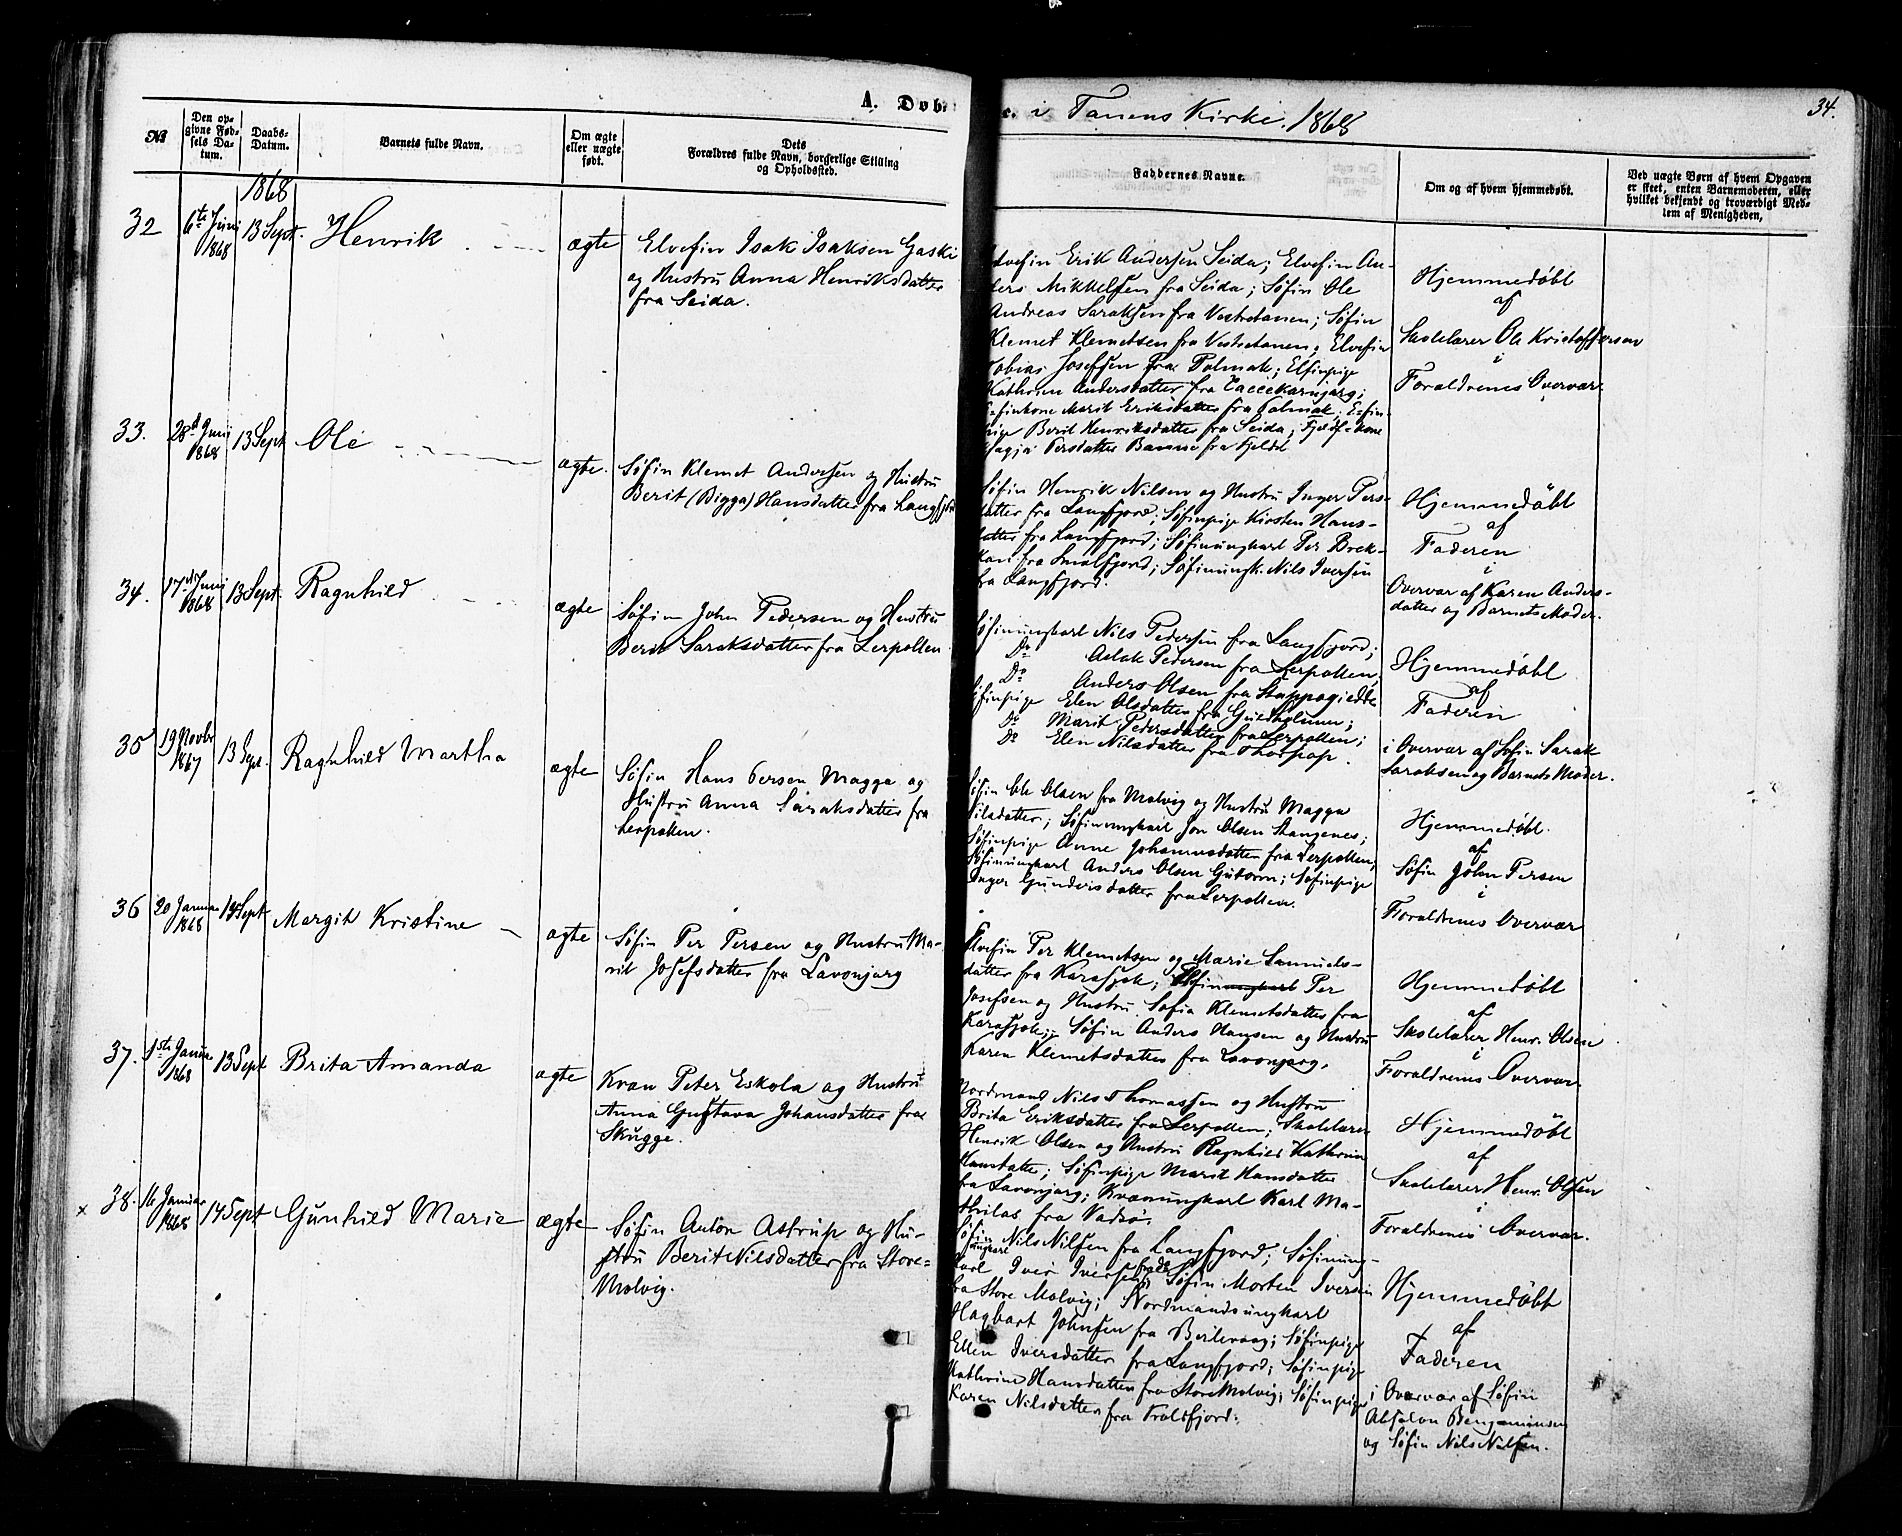 A. Døb=
e. i Tanens Kirke. 1868
34.
№
Den op-
givne Fød-
sels Da-
tum.
Daabs-
Datum.
Barnets fulde Navn.
Om ægte
eller uægte
født.
Dets
Forældres fulde Navn, borgerlige Stilling
og Opholdssted.
Faddernes Navne.
Om og af hvem hjemmedøbt.
Ved uægte Børn af hvem Opgaven
er skeet, enten Barnemoderen, eller
hvilket bekjendt og troværdigt Med-
lem af Menigheden,
1868
32
6te Juni
1868
13 Sept.
Henrik
ægte
Elvefin Isak Isaksen Gaski
og Hustru Anna Henriksdatter
fra Seida.
Elvefin Erik Andersen Seida; Elvefin An-
ders Mikkelsen fra Seida; Søfin Ole
Andreas Saraksen fra Vestretanen; Søfin
Klemet Klemetsen fra Vestretanen; Elvefin
Tobias Josefsen fra Polmak; Elfinpige
Kathrin Andersdatter fra
Elvefinkone Marit Eriksdatter fra Polmak; Elfin-
pige Berit Henriksdatter fra Seida; Fjeldf-kone
Magja Persdatter Banne fra Fjeldet
Hjemmedøbt
af
Skolelærer Ole Kristoffersen
i
Forældrenes Overvær.
33.
28d Juni
1868
13 Sept
Ole
ægte.
Søfin Klemet Andersen og Hustru
Berit (Bigga) Hansdatter fra Langfjord
Søfin Henrik Nilsen og Hustru Inger Pers-
datter fra Langfjord; Søfinpige Kirsten Hans-
datter fra Langfjord; Søfinungkarl Per Brek-
kan fra Smalfjord; Søfinungk. Nils Iversen
fra Langfjord.
Hjemmedøbt
af
Faderen
i
Overvær af Karen Anders-
datter og Barnets Moder.
34.
17de Juni
1868
13 Sept.
Ragnhild
ægte
Søfin John Pedersen og Hustru
Berit Saraksdatter fra Lerpollen
Søfinungkarl Nils Pedersen fra Langfjord;
Do Aslak Pedersen fra Lerpollen,
Do Anders Olsen fra Stappogiedde
Søfinpige Elen Olsdatter fra Guldholmen;
Do Marit Pedersdatter fra Lerpollen;
Do Elen Nilsdatter fra Thorhop.
Hjemmedøbt
af
Faderen
i Overvær af Søfin Sarak
Saraksen og Barnets Moder.
35
19 Novbr
1867
13 Sept.
Ragnhild Martha
ægte
Søfin Hans Persen Magga og
Hustru Anna Saraksdatter fra
Lerpollen.
Søfin Ole Olsen fra Molvig og Hustru Magga
Nilsdatter; Søfinungkarl Jon Olsen Stangenes;
Søfinpige Anne Johannesdatter fra Lerpollen;
Søfinungkarl Anders Olsen Gutorm; Søfinpige
Inger Gundersdatter fra Lerpollen.
Hjemmedøbt.
af
Søfin John Persen
i
Forældrenes Overvær
36
20 Januar
1868
14 Sept
Margit Kristine
ægte
Søfin Per Persen og Hustru Ma-
rit Josefsdatter fra Lavonjarg
Elvefin Per Klemetsen og Marie Samuels-
datter fra Karasjok; Per
Josefsen og Hustru Sofia Klemetsdatter fra
Karasjok; Søfin Anders Hansen og Hustru
Karen Klemetsdatter fra Lavonjarg.
Hjemmedøbt
af
Skolelærer Henr. Olsen
i
Forældrenes Overvær.
37.
1ste Januar
1868
13 Sept
Brita Amanda
ægte
Kvæn Peter Eskola og Hustru
Anna Gustava Johansdatter fra
Skugge.
Nordmand Nils Thomassen og Hustru
Brita Eriksdatter fra Lerpollen; Skolelærer
Henrik Olsen og Hustru Ragnhild Kathrine
Hansdatter; Søfinpige Marit Hansdatter
fra Lavonjarg; Kvænungkarl Karl Ma-
thilas fra Vadsø.
Hjemmedøbt
af
Skolelærer Henr. Olsen
i
Forældrenes Overvær.
x 38.
16 Januar
1868
14 Sept
Gunhild Marie
ægte
Søfin Anton Astrup og Hu-
stru Berit Nilsdatter fra Store-
Molvig.
Søfin Nils Nilsen fra Langfjord; Søfinung-
karl Iver Iversen, Søfin Morten Iversen
fra Store Molvig; Nordmandsungkarl
Hagbart Johnsen fra Berlevaag; Søfinpige
Ellen Iversdatter fra Langfjord; Søfinpige
Kathrine Hansdatter fra Store Molvig; Søfinpige
Karen Nilsdatter fra Troldfjord.
Hjemmedøbt
af
Faderen
i Overvær af Søfin
Absalon Benjaminsen
og Søfin Nils Nilsen.